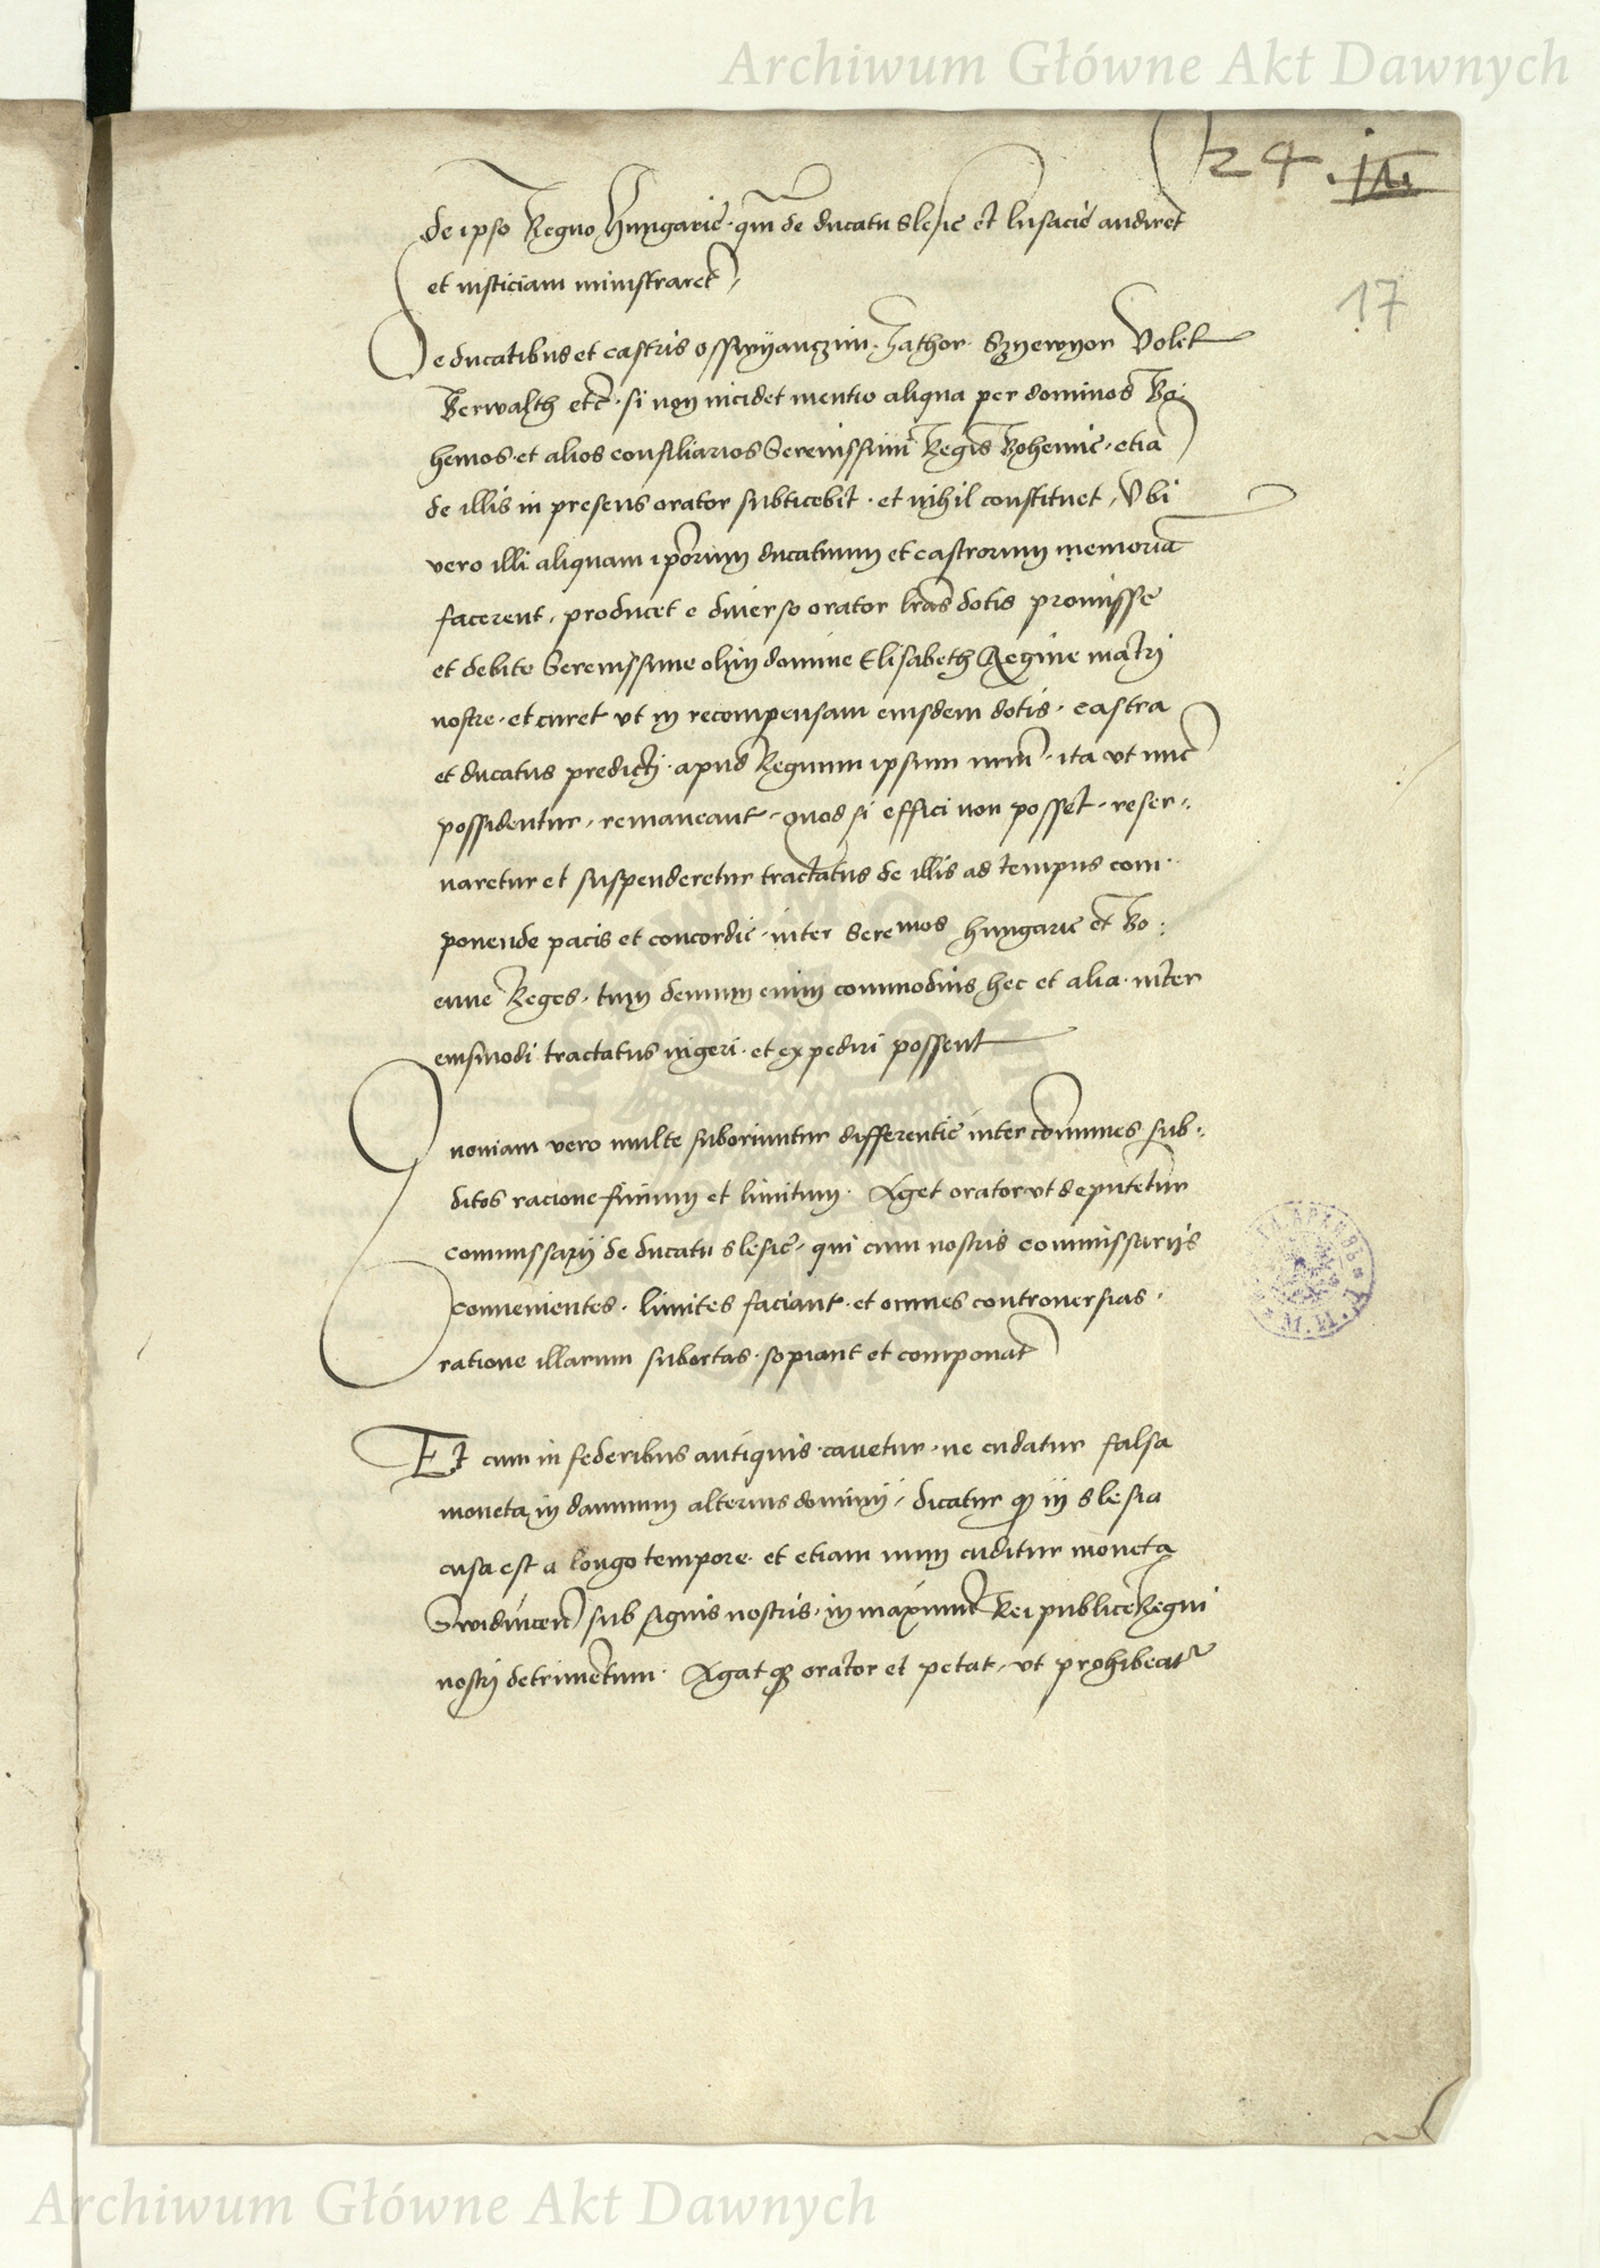 Archiwum Główne Akt Dawnych
24.
17
de ipso Regno Hungarie · qui de ducatu Slesie et Lusacie audiret
et iusticiam ministraret,
De ducatibus et castris osswyanczim · zathor · Szyewyor Volek
Berwalth etc · si non incidet mentio aliqua per dominos Bo:
hemos · et alios consiliarios Serenissimi Regis Bohemie · etia
de illis in presens orator subticebit · et nihil constituet, Ubi
vero illi aliquam iporum ducatuum et castrorum memoria
facerent, producet e diuerso orator lras dotis promisse
et debite Serenissime olim domine Elisabeth Regine matri
nostre · et curet ut in recompensam eiusdem dotis · castra
et ducatus predicti · apud Regnum ipsum nrm · ita ut nuc
possidentur, remaneant, quod si effici non posset · reser:
uaretur et suspenderetur tractatus de illis ad tempus com:
ponende pacis et concordie · inter Seremos hungarie et Bo:
emie Reges · tum demum enim commodius hec et alia · inter
eiusmodi tractatus ingeri · et expediri possent
Quoniam vero multe suboriuntur differentie inter comunes sub:
ditos racione finium et limitum · Aget orator ut deputetur
commissarij de ducatu Slesie, qui cum nostris commissarijs
conuenientes · limites faciant · et omnes controuersias ·
ratione illarum subortas · sopiant et componat
Et cum in federibus antiquis · cauetur · ne cudatur falsa
moneta in damnum alterius dominij, dicatur q in Slesia
cusa est a longo tempore · et etiam nunc cuditur moneta
Swidnicen sub signis nostris · in maximu Rei publice Regni
nostri detrimentum · Agat q orator et petat, ut prohibeatr
Archiwum Główne Akt Dawnych